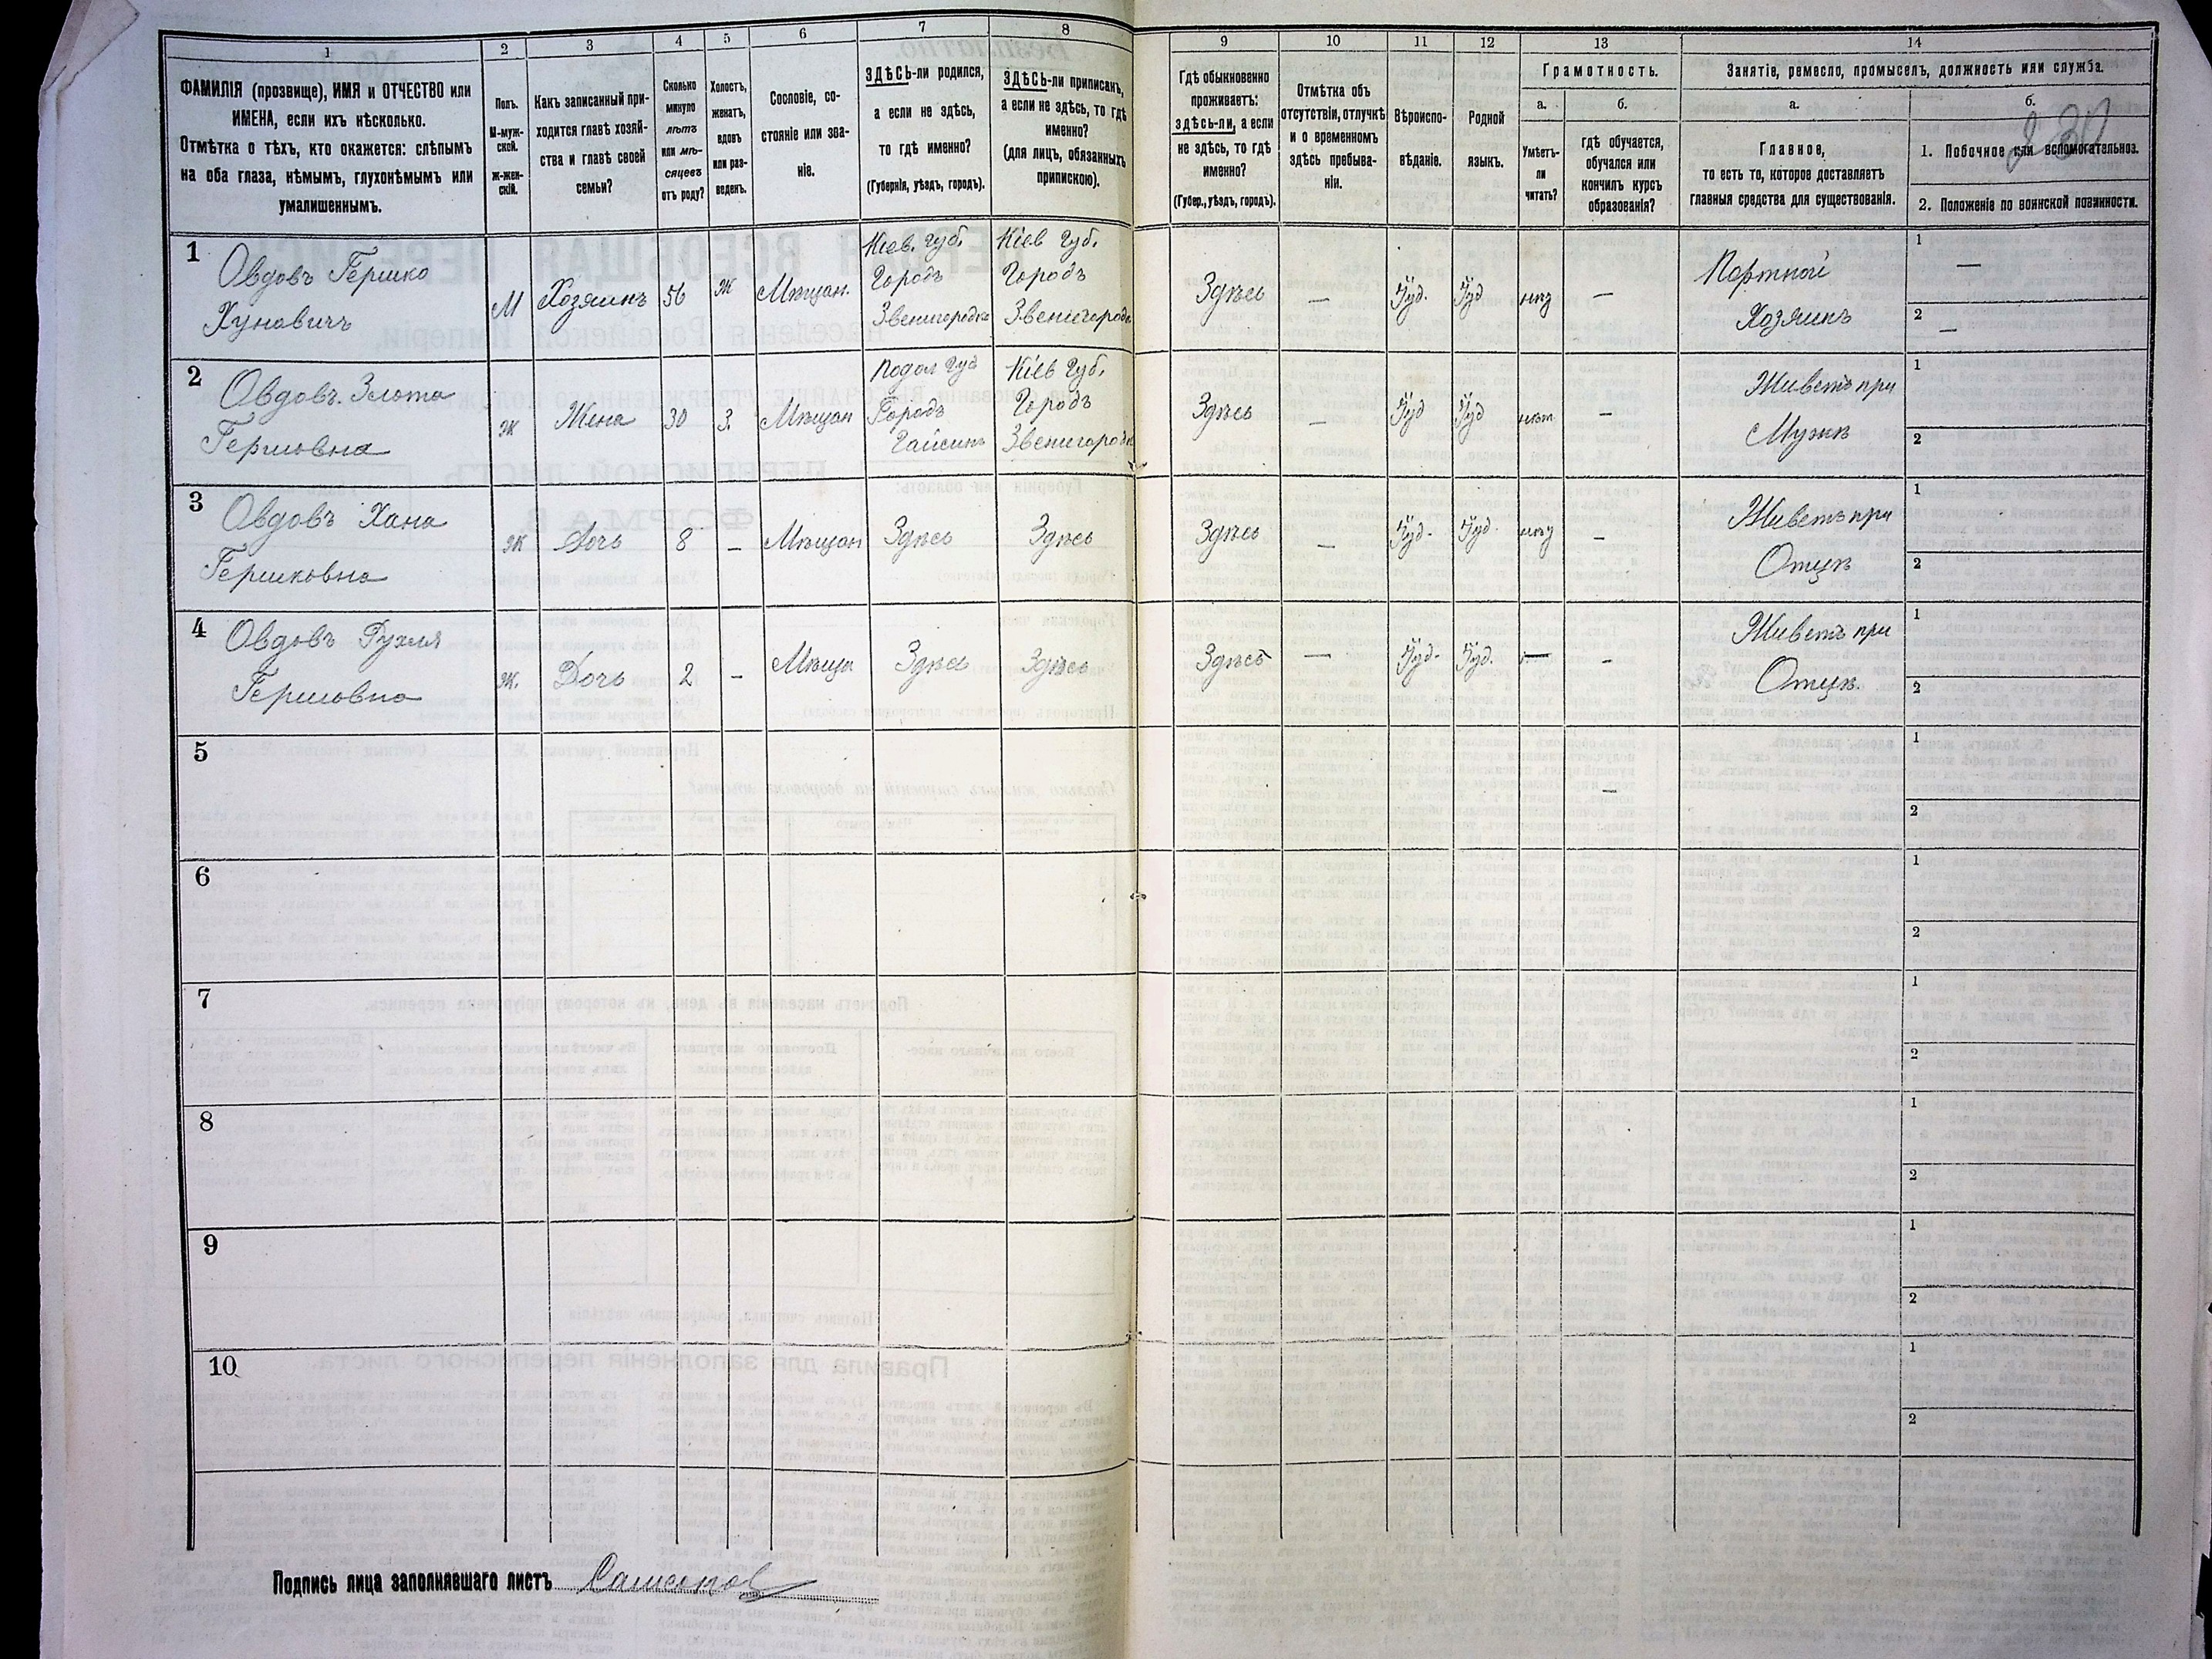 1 2 3 4 5 6 7 8 9 10 11 12 13 14
ФАМИЛІЯ (прозвище), ИМЯ и ОТЧЕСТВО или
ИМЕНА, если ихъ нѣсколько.
Отмѣтка о тѣхъ, кто окажется: слѣпымъ
на оба глаза, нѣмымъ, глухонѣмымъ или
умалишеннымъ.
Полъ.
М-муж-
ской.
Ж-жен-
скій.
Какъ записанный при-
ходится главѣ хозяй-
ства и главѣ своей
семьи?
Сколько
минуло
лѣтъ
или мѣ-
сяцевъ
отъ роду?
Холостъ,
женатъ,
вдовъ
или раз-
веденъ.
Сословіе, со-
стояніе или зва-
ніе.
ЗДѢСЬ-ли родился,
а если не здѣсь,
то гдѣ именно?
(Губернія, уѣздъ, городъ).
ЗДѢСЬ-ли приписанъ,
а если не здѣсь, то гдѣ
именно?
(для лицъ, обязанныхъ
припискою).
Гдѣ обыкновенно
проживаетъ:
здѣсь-ли, а если
не здѣсь, то гдѣ
именно?
(Губер., уѣздъ, городъ).
Отмѣтка объ
отсутствіи, отлучкѣ
и о временномъ
здѣсь пребыва-
ніи.
Вѣроиспо-
вѣданіе.
Родной
языкъ.
Грамотность.
а.
Умѣетъ-
ли
читать?
б.
гдѣ обучается,
обучался или
кончилъ курсъ
образованія?
Занятіе, ремесло, промыселъ, должность или служба.
а.
Главное,
то есть то, которое доставляетъ
главныя средства для существованія.
б.
230
1. Побочное или вспомогательное.
2. Положеніе по воинской повинности.
1
Овдовъ Гершко
Хуновичъ
М
Хозяинъ
56
Ж
Мѣщан.
Кіев. губ.
Городъ
Звенигородка
Кіев губ.
Городъ
Звенигородк
Здѣсь
—
Іуд.
Іуд
—
Портной
Хозяинъ
1
—
2
—
2
Овдовъ. Злота
Гершовна
Ж
Жена
30
З.
Мѣщан
Подол губ
Городъ
Гайсинъ
Кіев губ.
Городъ
Звенигородк
Здѣсь
—
Іуд
Іуд
нѣт
—
Живетъ при
Мужѣ
1
2
3
Овдовъ Хана
Гершковна
Ж
Дочь
8
—
Мѣщан
Здѣсь
Здѣсь
Здѣсь
—
Іуд.
Іуд.
—
Живетъ при
Отцѣ
1
2
4
Овдовъ Рухля
Гершовна
Ж.
Дочь
2
—
Мѣща
Здѣсь
Здѣсь
Здѣсь
—
Іуд.
Іуд.
—
—
Живетъ при
Отцѣ.
1
2
5
—
1
2
6
1
2
7
1
2
8
1
2
9
1
2
10
1
2
Подпись лица заполнявшаго листъ